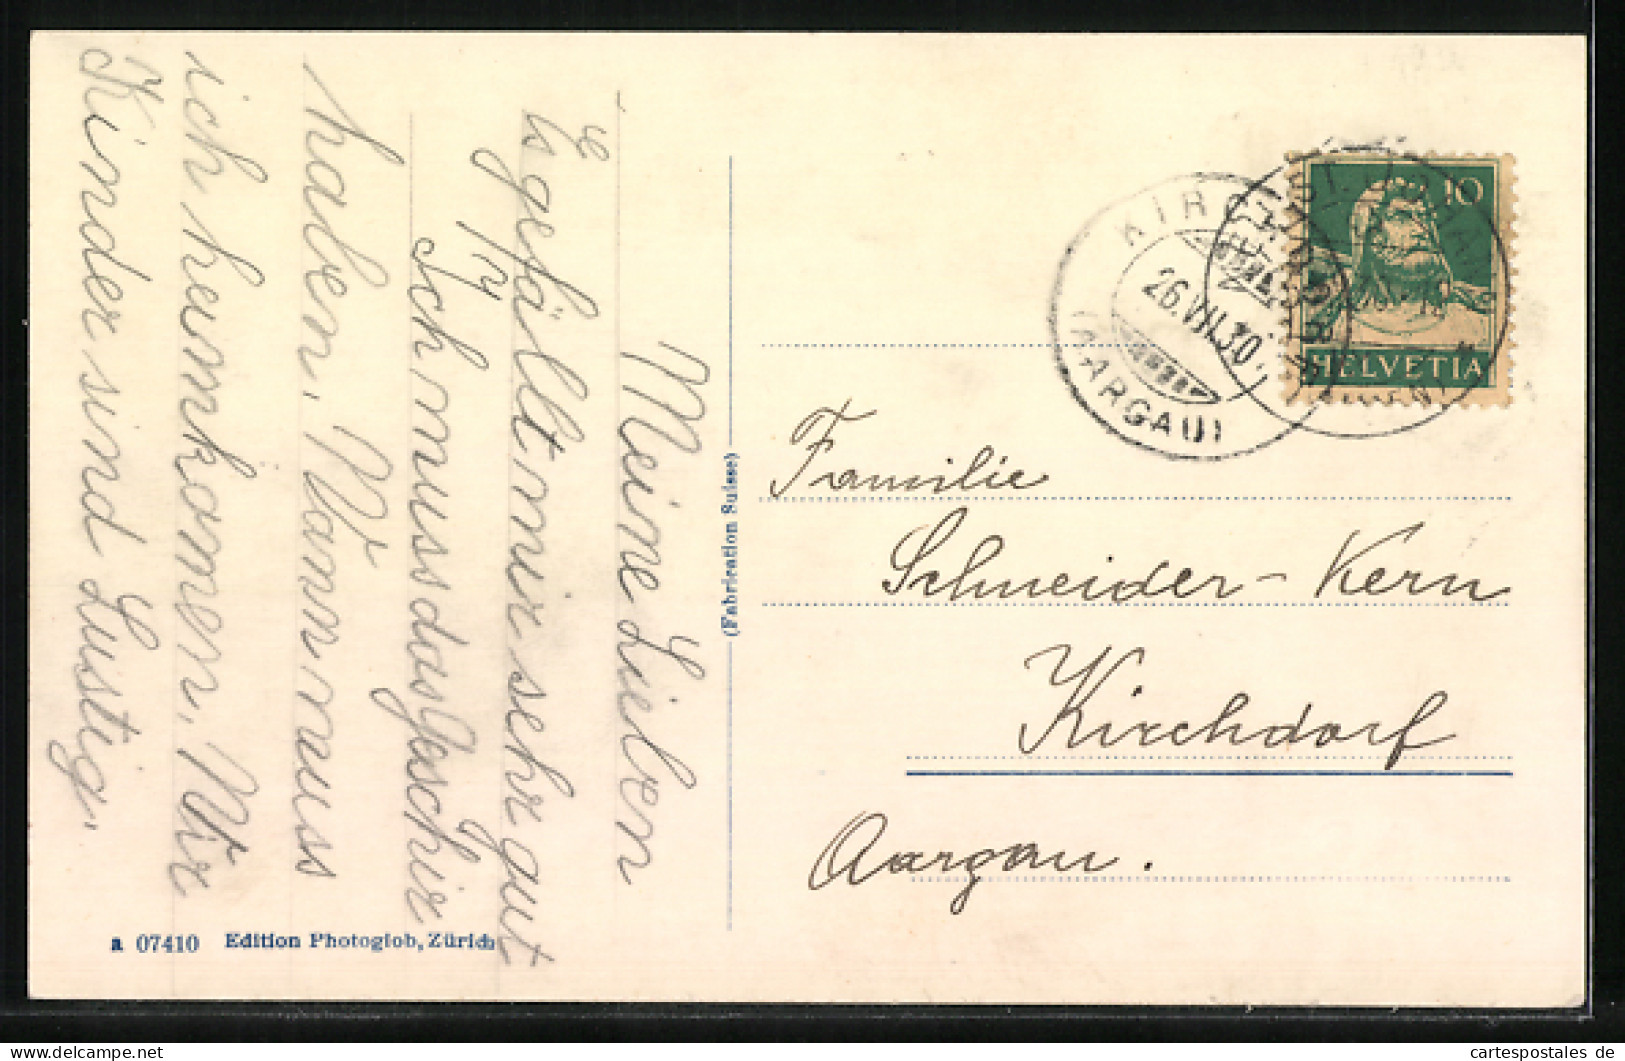 Meine Lieben
Es gefällt mir sehr gut
Ich muss das Geschir
haben. Wann muss
ich heimkomen. Wir
Kinder sind Lustig.
a 07410 Edition Photoglob, Zürich
(Fabrication Suisse)
KIRCHDORF
26.VII.30
(AARGAU)
10
HELVETIA
Familie
Schneider-Kern
Kirchdorf
Aargau.
cartespostales de